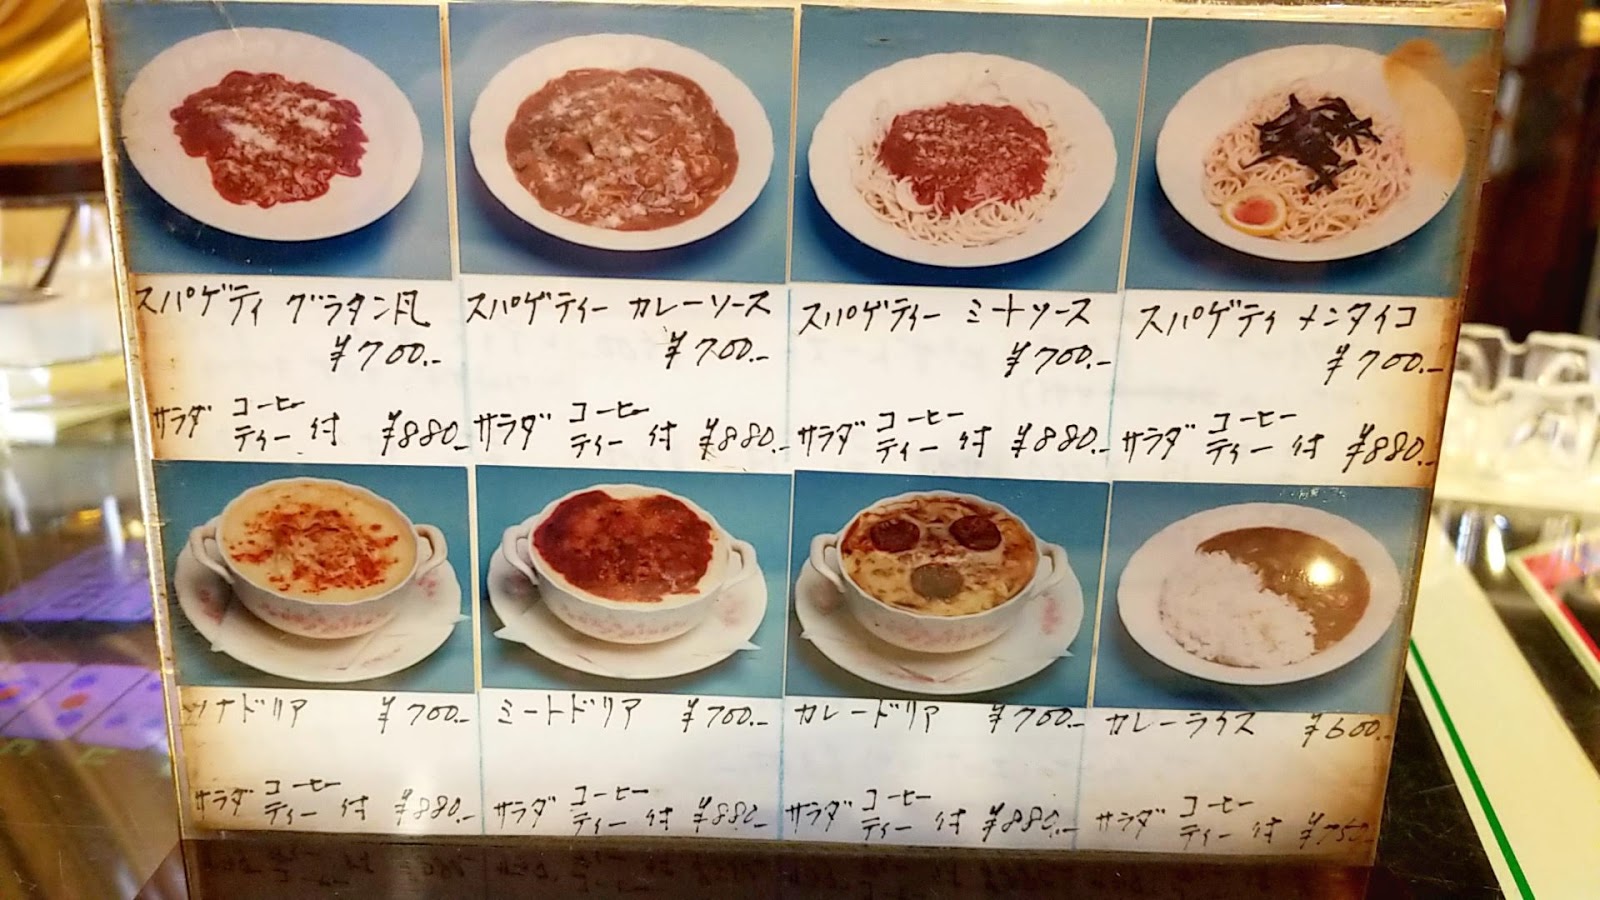 スパゲティ グラタン風
¥700.-
サラダ コーヒー
ティー 付 ¥880.-
スパゲティー カレーソース
¥700.-
サラダ コーヒー
ティー 付 ¥880.-
スパゲティー ミートソース
¥700.-
サラダ コーヒー
ティー 付 ¥880.-
スパゲティ メンタイコ
¥700.-
サラダ コーヒー
ティー 付 ¥880.-
ツナドリア ¥700.-
サラダ コーヒー
ティー 付 ¥880.-
ミートドリア ¥700.-
サラダ コーヒー
ティー 付 ¥880.-
カレードリア ¥700.-
サラダ コーヒー
ティー 付 ¥880.-
カレーライス ¥600.-
サラダ コーヒー
ティー 付 ¥750.-